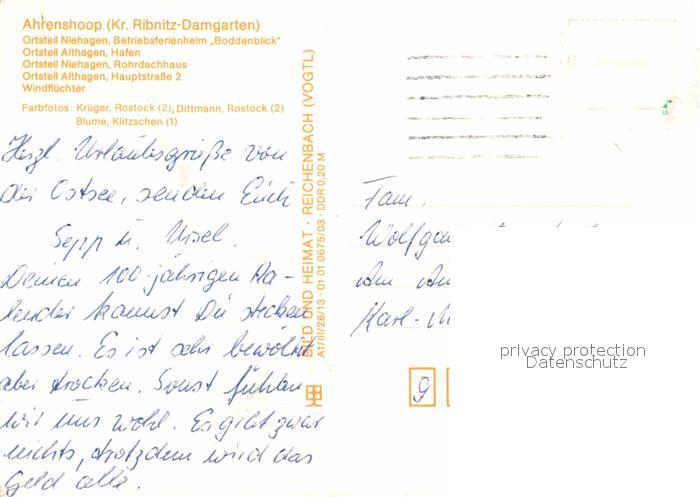 Ahrenshoop (Kr. Ribnitz-Damgarten)
Ortsteil Niehagen, Betriebsferienheim „Boddenblick"
Ortsteil Althagen, Hafen
Ortsteil Niehagen, Rohrdachhaus
Ortsteil Althagen, Hauptstraße 2
Windflüchter
Farbfotos: Krüger, Rostock (2), Dittmann, Rostock (2)
Blume, Klitzschen (1)
BILD UND HEIMAT · REICHENBACH (VOGTL)
A1/III/26/13 · 01 01 0675/03 · DDR 0,20 M
Herzl. Urlaubsgrüße von
der Ostsee, senden Euch
Sepp u. Ursel.
Deinen 100-jährigen Ka-
lender kannst Du stecken
lassen. Es ist sehr bewölkt
aber trocken. Sonst fühlen
wir uns wohl. Es gibt zwar
nichts, trotzdem wird das
Geld alle.
Fam.
Wolfga
Am
Karl-M
9
privacy protection
Datenschutz